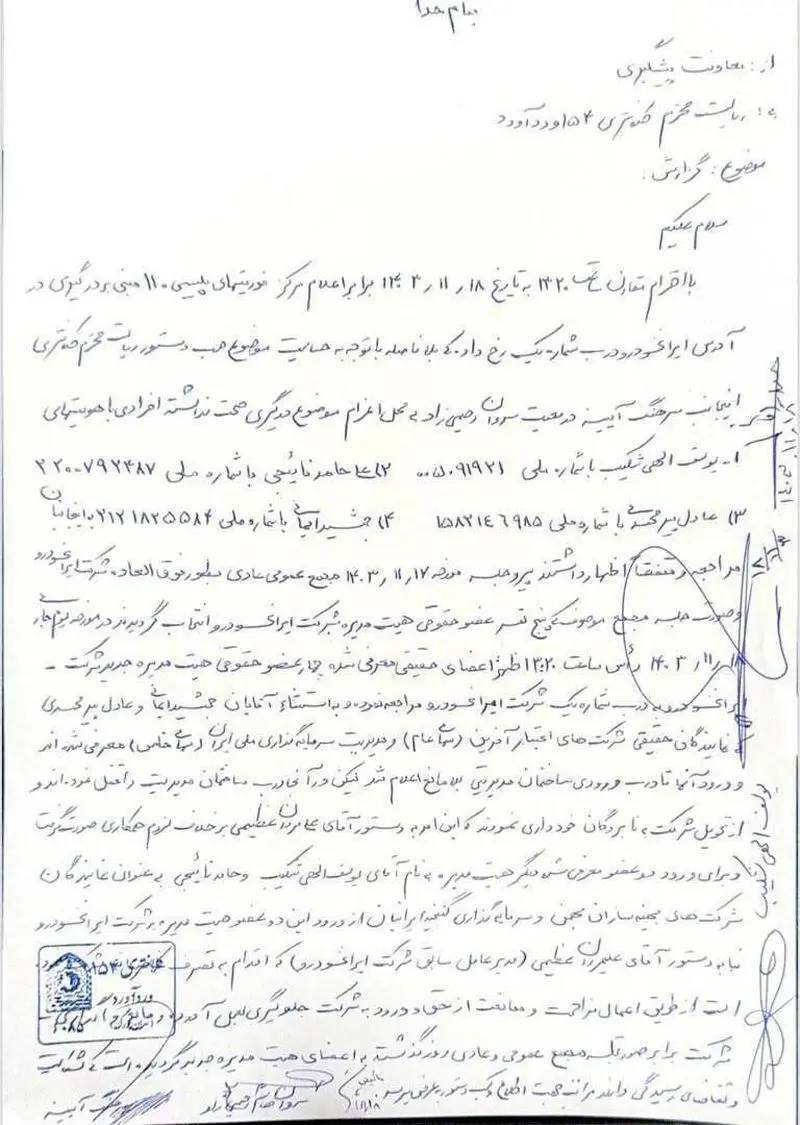 بنام خدا
از: معاونت پیشگیری
به: ریاست محترم کلانتری ۱۵۴ وردآورد
موضوع: گزارش:
سلام علیکم
با احترام مقارن ساعت ۱۳۲۰ به تاریخ ۱۸ر۱۱ر۱۴۰۳ برابر اعلام مرکز فوریتهای پلیسی ۱۱۰ مبنی بر درگیری در
آدرس ایرانخودرو درب شماره یک رخ داده که بلافاصله با توجه به حساسیت موضوع حسب دستور ریاست محترم کلانتری
اینجانب سرهنگ آیینه در معیت سروان رحیمی زاد به محل اعزام موضوع درگیری صحت نداشته افرادی با هویتهای
۱- یوسف الهی شکیب با شماره ملی ۰۰۵۰۹۱۹۲۱ ۲) حامد تاییجی با شماره ملی ۳۲۰۰۷۹۲۴۸۷
۳) عادل پیرمحمدی با شماره ملی ۱۵۸۲۱۴۶۹۸۵ ۴) جمشید ایمانی با شماره ملی ۲۱۲۱۸۲۵۵۸۴ به اینجانبان
مراجعه و متفقا اظهار داشتند پیرو جلسه مورخه ۱۷ر۱۱ر۱۴۰۳ مجمع عمومی عادی بطور فوق العاده شرکت ایرانخودرو
و صورت جلسه مجمع موصوف که پنج نفر عضو حقوقی هیت مدیره شرکت ایرانخودرو انتخاب گردیدند در مورخه یوم جاری
۱۸ر۱۱ر۱۴۰۳ رأس ساعت ۱۳:۲۰ ظهر اعضای حقیقی معرفی شده چهار عضو حقوقی هیت مدیره جدید شرکت -
ایرانخودرو به درب شماره یک شرکت ایرانخودرو مراجعه نموده و به استثناء آقایان جمشید ایمانی و عادل پیرمحمدی
که نمایندگان حقیقی شرکت های اعتبار آفرین (سهامی عام) و مدیریت سرمایه گذاری ملی ایران (سهامی خاص) معرفی شده اند
و ورود آنها تا درب ورودی ساختمان مدیریتی بلامانع اعلام شد لیکن در آنجا درب ساختمان مدیریت را قفل نموده اند و
از تحویل شرکت به نامبردگان خودداری نمودند که این امر به دستور آقای علیمردان عظیمی بر خلاف لزوم همکاری صورت گرفت
و برای ورود دو عضو معرفی شده دیگر هیت مدیره به نام آقای یوسف الهی شکیب و حامد تاییجی به عنوان نمایندگان
شرکت های بهینه سازان بهمن و سرمایه گذاری گنجینه ایرانیان از ورود این دو عضو هیت مدیره به شرکت ایرانخودرو
بنا به دستور آقای علیمردان عظیمی (مدیرعامل سابق شرکت ایرانخودرو) که اقدام به تصرف
است از طریق اعمال مزاحمت و ممانعت از حق ورود به شرکت جلوگیری بعمل آمده و
شرکت برابر صورتجلسه مجمع عمومی و عادی روز گذشته به اعضای هیت مدیره جدید گردیده است که شکایت
و تقاضای رسیدگی دارند مراتب جهت اطلاع و کسب دستور بعرض میرسد
کلانتری ۱۵۴
وردآورد
سرهنگ آیینه
یوسف الهی شکیب
۱۴۰۳ ر ۱۱ ر ۱۸